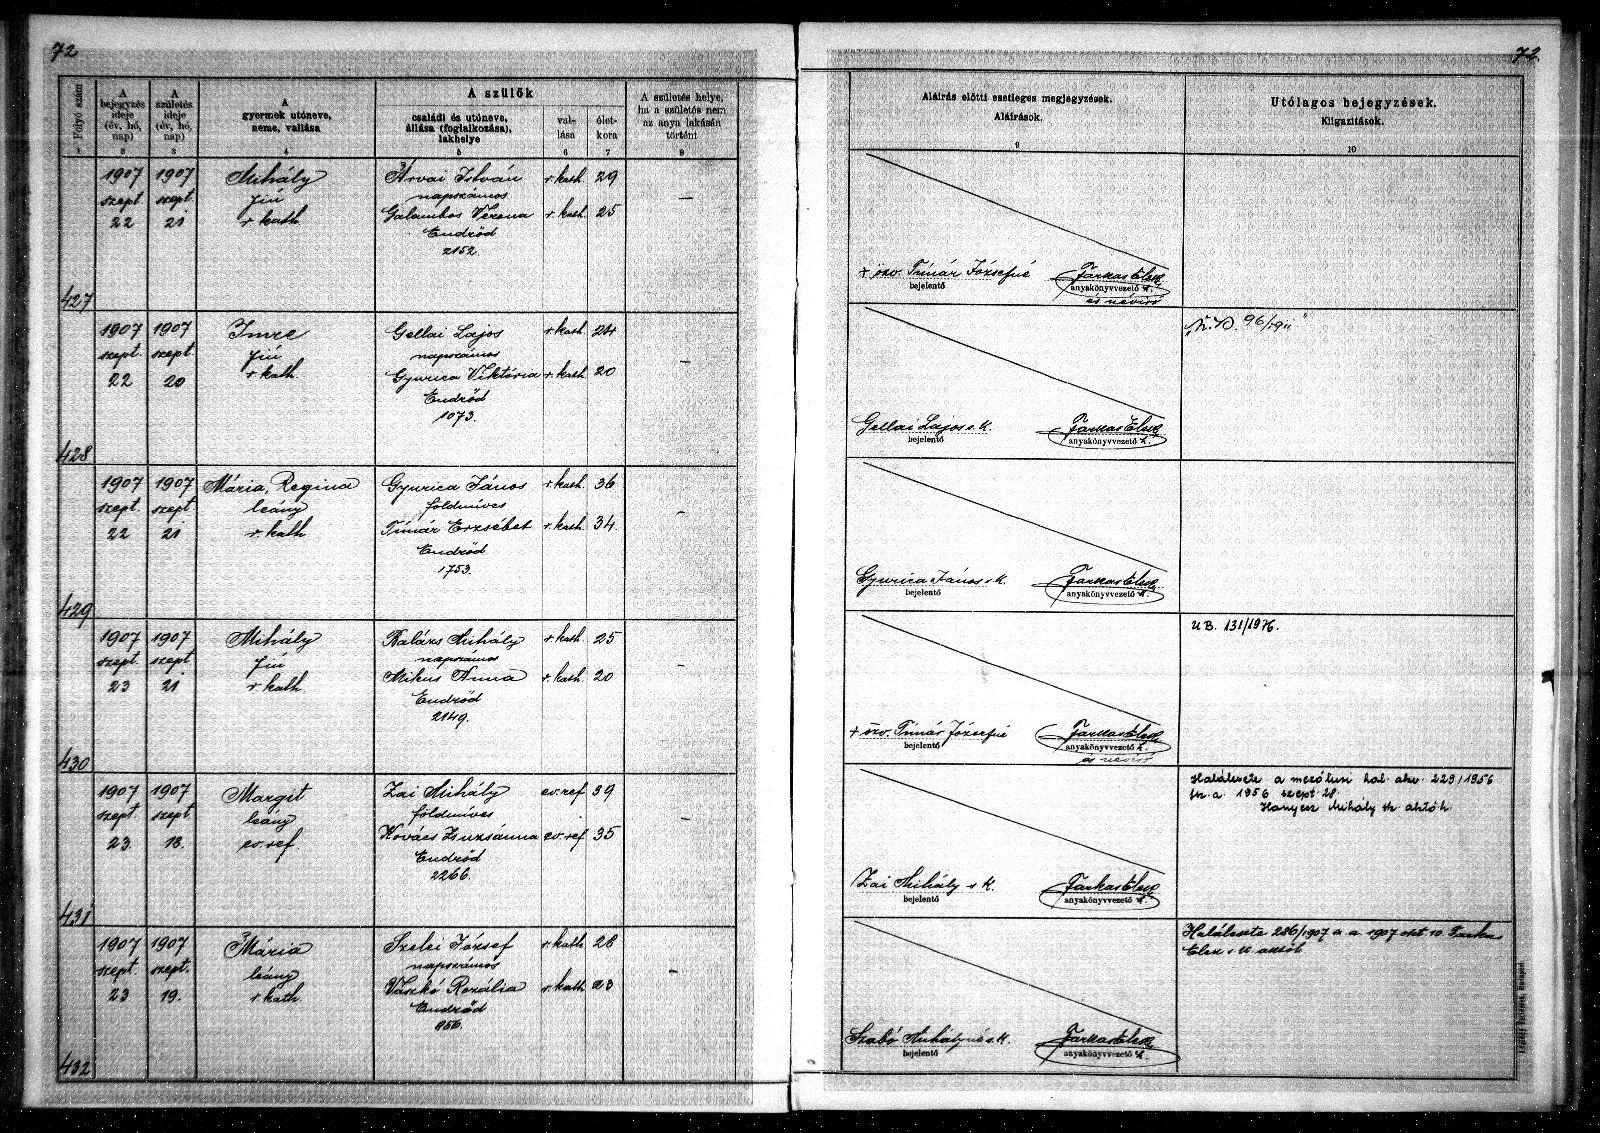 72
72.
Folyó szám
A bejegyzés ideje (év, hó, nap)
A születés ideje (év, hó, nap)
A gyermek utóneve, neme, vallása
A szülők
családi és utóneve, állása (foglalkozása), lakhelye
vallása
életkora
A születés helye, ha a születés nem az anya lakásán történt
Aláírás előtti esetleges megjegyzések.
Aláírások.
Utólagos bejegyzések.
Kiigazítások.
1 2 3 4 5 6 7 8 9 10
427
1907 szept. 22
1907 szept. 21
Mihály
fiú
r. kath
Árvai István r. kath. 29
napszámos
Galambos Verona r. kath. 25
Endrőd
2152.
—
+ özv. Tímár Józsefné
bejelentő
Farkas Elek
anyakönyvvezető h.
és névíró
428
1907 szept. 22
1907 szept. 20
Imre
fiú
r. kath.
Gellai Lajos r. kath. 24
napszámos
Gyurica Viktória r. kath. 20
Endrőd
1073.
—
Gellai Lajos s. k.
bejelentő
Farkas Elek
anyakönyvvezető h.
96/1911
429
1907 szept. 22
1907 szept. 21
Mária, Regina
leány
r. kath
Gyurica János r. kath. 36
földmíves
Tímár Erzsébet r. kath. 34.
Endrőd
1753.
—
Gyurica János s. k.
bejelentő
Farkas Elek
anyakönyvvezető h.
430
1907 szept. 23
1907 szept. 21
Mihály
fiú
r. kath
Balázs Mihály r. kath. 25
napszámos
Mikus Anna r. kath. 20
Endrőd
2149.
—
+ özv. Tímár Józsefné
bejelentő
Farkas Elek
anyakönyvvezető h.
és névíró
UB. 131/1976.
431
1907 szept. 23.
1907 szept. 18.
Margit
leány
ev. ref
Zai Mihály ev. ref 39
földmíves
Kovács Zsuzsánna ev. ref 35
Endrőd
2266.
—
Zai Mihály s. k.
bejelentő
Farkas Elek
anyakönyvvezető h.
Halálesete a hal. akv. 229/1956
fsz. a. 1956 szept 28.
Mihály
432
1907 szept. 23
1907 szept. 19.
Mária
leány
r. kath
Szelei József r. kath 28
napszámos
Vaszkó Rozália r. kath 23
Endrőd
856.
—
Szabó Mihályné s. k.
bejelentő
Farkas Elek
anyakönyvvezető h.
Halálesete 286/1907 a a 1907 okt 10. Farkas
Elek s. k.